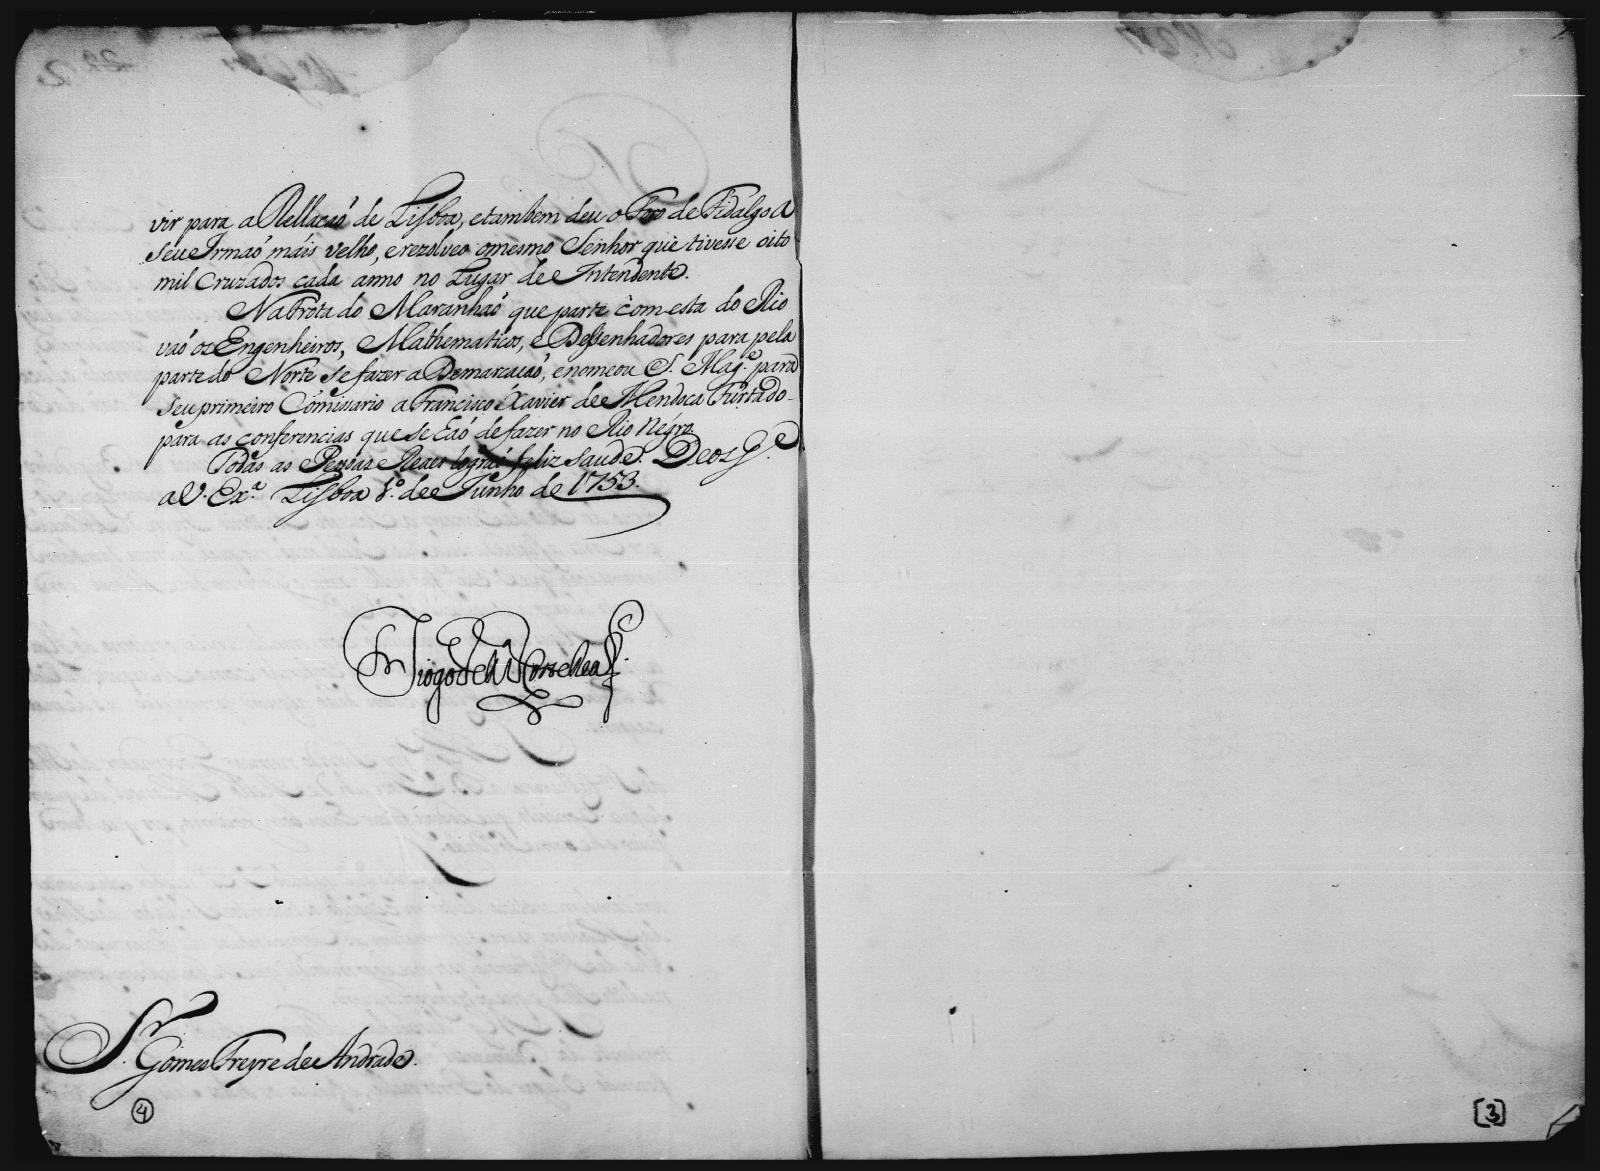 vir para a Rellacaõ de Lisboa, etambem deu o Foro de Fidalgo a
seu Irmaõ máis velho, e rezolveo omesmo Senhor que tivesse oito
mil Cruzados cada anno no Lugar de Intendente.
Na Frota do Maranhaõ que parte com esta do Rio
vaõ os Engenheiros, Mathematicos, e Dessenhadores para pela
parte do Norte se fazer a Demarcaçaõ, e nomeou S. Mag.e para
seu primeiro Comissario a Francisco Xavier de Mendoca Furtado
para as conferencias que se haõ de fazer no Rio Négro.
Todas as Pessoas Reaes lograõ feliz saude. Deos g.e
a V. Ex.a Lisboa 1.o de Junho de 1753.
Diogo de M.ça Corte Real
S.r Gomes Freyre de Andrade.
4
[3]